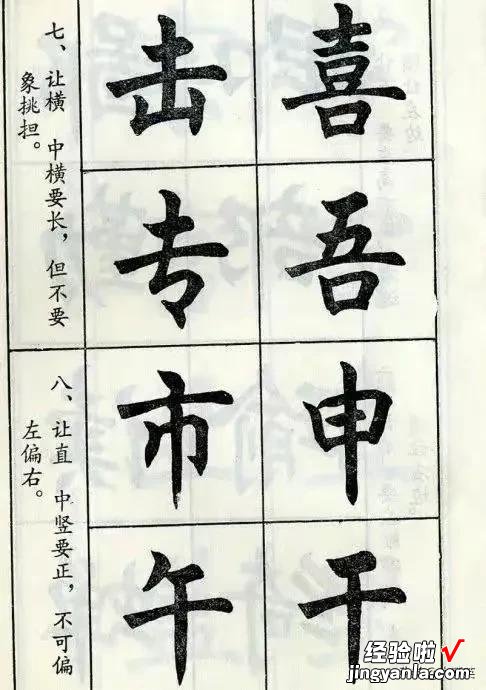 七、让横 中横要长，但不要
象挑担。
喜
击
吾
专
八、让直 中竖要正，不可偏
左偏右。
申
市
干
午
经验啦√
jingyanla.com